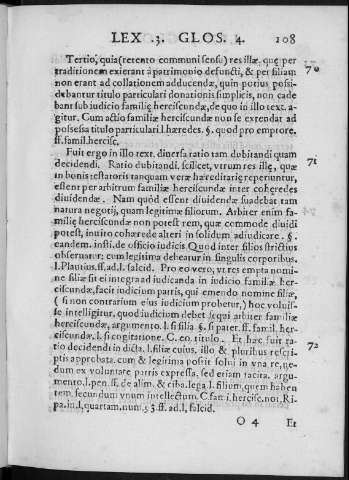 LEX .3. GLOS. 4. 108
Tertio, quia (retento communi sensu) res illæ, quę per 70
traditionem exierant à patrimonio defuncti, & per filiam
non erant ad collationem adducendæ, quin potius possi-
debantur titulo particulari donationis simplicis, non cade
bant sub iudicio familię herciscundæ, de quo in illo text. a-
gitur. Cum actio familiæ herciscundæ non se extendat ad
possessa titulo particulari. l. hæredes. §. quod pro emptore.
ff. famil. hercisc.
Fuit ergo in illo text. diuersa ratio tam dubitandi quam 71
decidendi. Ratio dubitandi. scilicet, vtrum res illę, quæ
in bonis testatoris tanquam veræ hæreditarię reperiuntur,
essent per arbitrum familiæ herciscundæ inter coheredes
diuidendæ. Nam quòd essent diuidendæ suadebat tam
natura negotij, quam legitimæ filiorum. Arbiter enim fa-
milię herciscundæ non potest rem, quæ commode diuidi
potest, inuito cohærede alteri in solidum adiudicare. §.
eandem. insti. de officio iudicis Quod inter filios strictius
obseruatur: cum legitima debeatur in singulis corporibus.
l. Plautius. ff. ad. l. falcid. Pro eo vero, vt res empta nomi-
ne filiæ sit ei integra ad iudicanda in iudicio familiæ her-
ciscundæ, facit iudicium patris, qui emendo nomine filiæ,
( si non contrarium eius iudicium probetur, ) hoc voluis-
se intelligitur. quod iudicium debet sequi arbiter familiæ
herciscundæ, argumento. l. si filia §. si pater. ff. fam il. her-
ciscundæ. l. si cogitatione. C. eo. titulo. Et hæc fuit ra- 72
tio decidendi in dicta. l. filiæ cuius. illo & pluribus rescri-
ptis approbata. cum & legitima possit solui in vna re, ne-
dum ex voluntate patris expressa, sed etiam tacita. argu-
mento. l. pen. ff. de alim. & ciba. lega. l. filium, quem haben
tem. secundum vnum intellectum. C. fam i. hercisc. not. Ri-
pa. in. l. quartam. num. 5 3. ff. ad. l. falcid.
O 4 Et